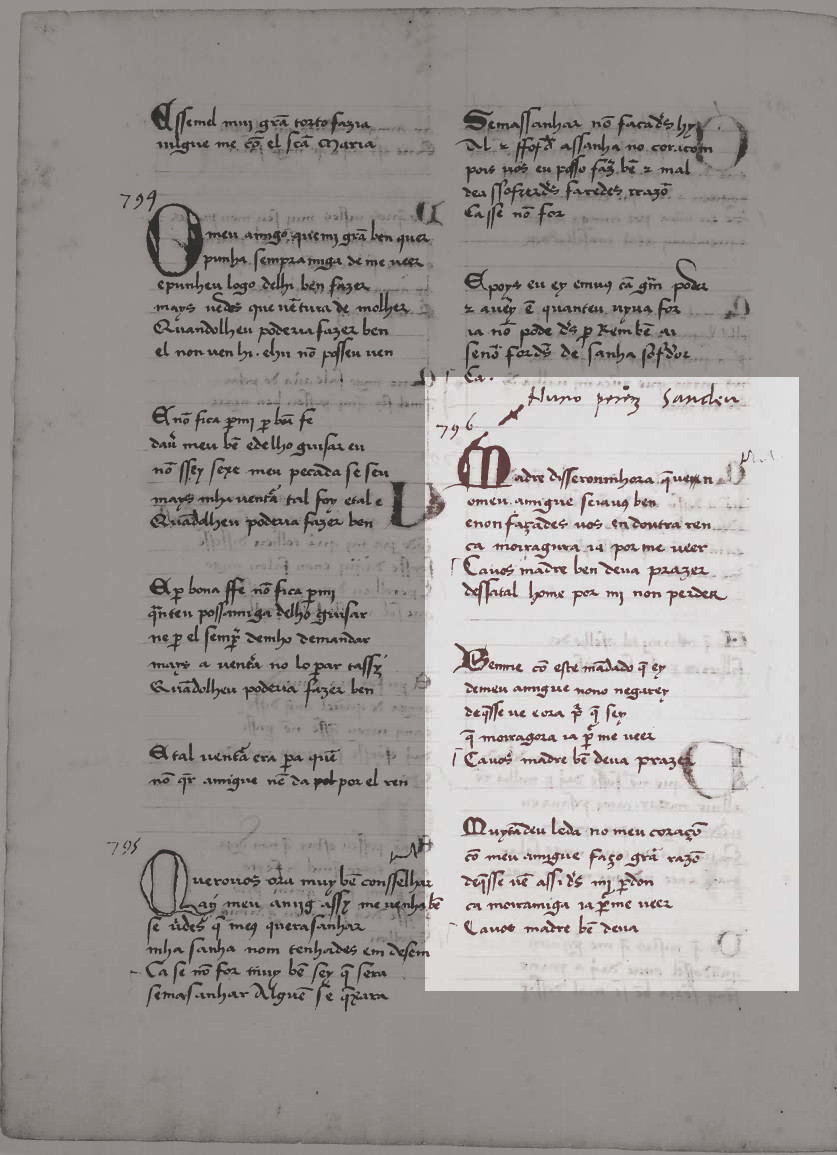 Essemel mui grã torto fazia
nulgue me cõ el scã Maria
794
O meu amigo que mi grã ben quer
punha sempra miga de me veer
epunheu logo delhi ben fazer
mays vedes que uẽtura de molher
Quandolheu poderia fazer ben
el non uen hi . ehu nõ posseu uen
E nõ fica pmi p bõa fe
daũ meu bẽ edelho guisar eu
nõ ssey sexe meu pecada se seu
mays mha uentã tal foy etal e
Quãdolheu poderia fazer ben
E p bona ffe nõ fica pmi
q̃nteu possamiga delho guisar
ne p el semp̃ demho demandar
mays a uentã no lo par tassy
Quãdolheu poderia fazer ben
E tal uentã era pa quẽ
nõ q̃r amigue nẽ da por el ren
795
Querouos ora muy bẽ consselhar
ay meu amig assy me uenha bẽ
se ũdes q̃ meq̃ querasanhar
mha sanha nom tenhades em desem
Ca se nõ for muy bẽ sey q̃ sera
semasanhar Alguẽ sẽ q̃xara
Semassanhar nõ facads hy
Al z ssofd̃ assanha no coraçom
pois uos eu posso faz̃ bẽ z mal
dea ssofrerds̃ faredes razõ
Ca sse nõ for
E poys eu ey emuq̃ cã gñm poder
z auẽy ẽ quanteu uyua for
ia nõ pode ds̃ p Rem bẽ au
senõ fords̃ de sanha sofdor
Ca .
Nuno perez Sandeu
796
Madre disseronmhora que uen
omeu amigue seiauq̃ ben
enon façades uos en doutra ren
ca moiragura ia por me ueer
Cauos madre ben deua prazer
dessatal home por mi non perder
Benme cõ este mãdado q̃ ey
demeu amigue nono negarey
deq̃sse ue eora p̃ q̃ sey
q̃ moiragora ia p̃ me ueer
Cauos madre bẽ deua prazer
Muytãdeu leda no meu coraçõ
cõ meu amigue faço grã razõ
deq̃sse uẽ assi ds̃ mi pdon
ca moiramiga ia p̃me ueer
Cauos madre bẽ deua